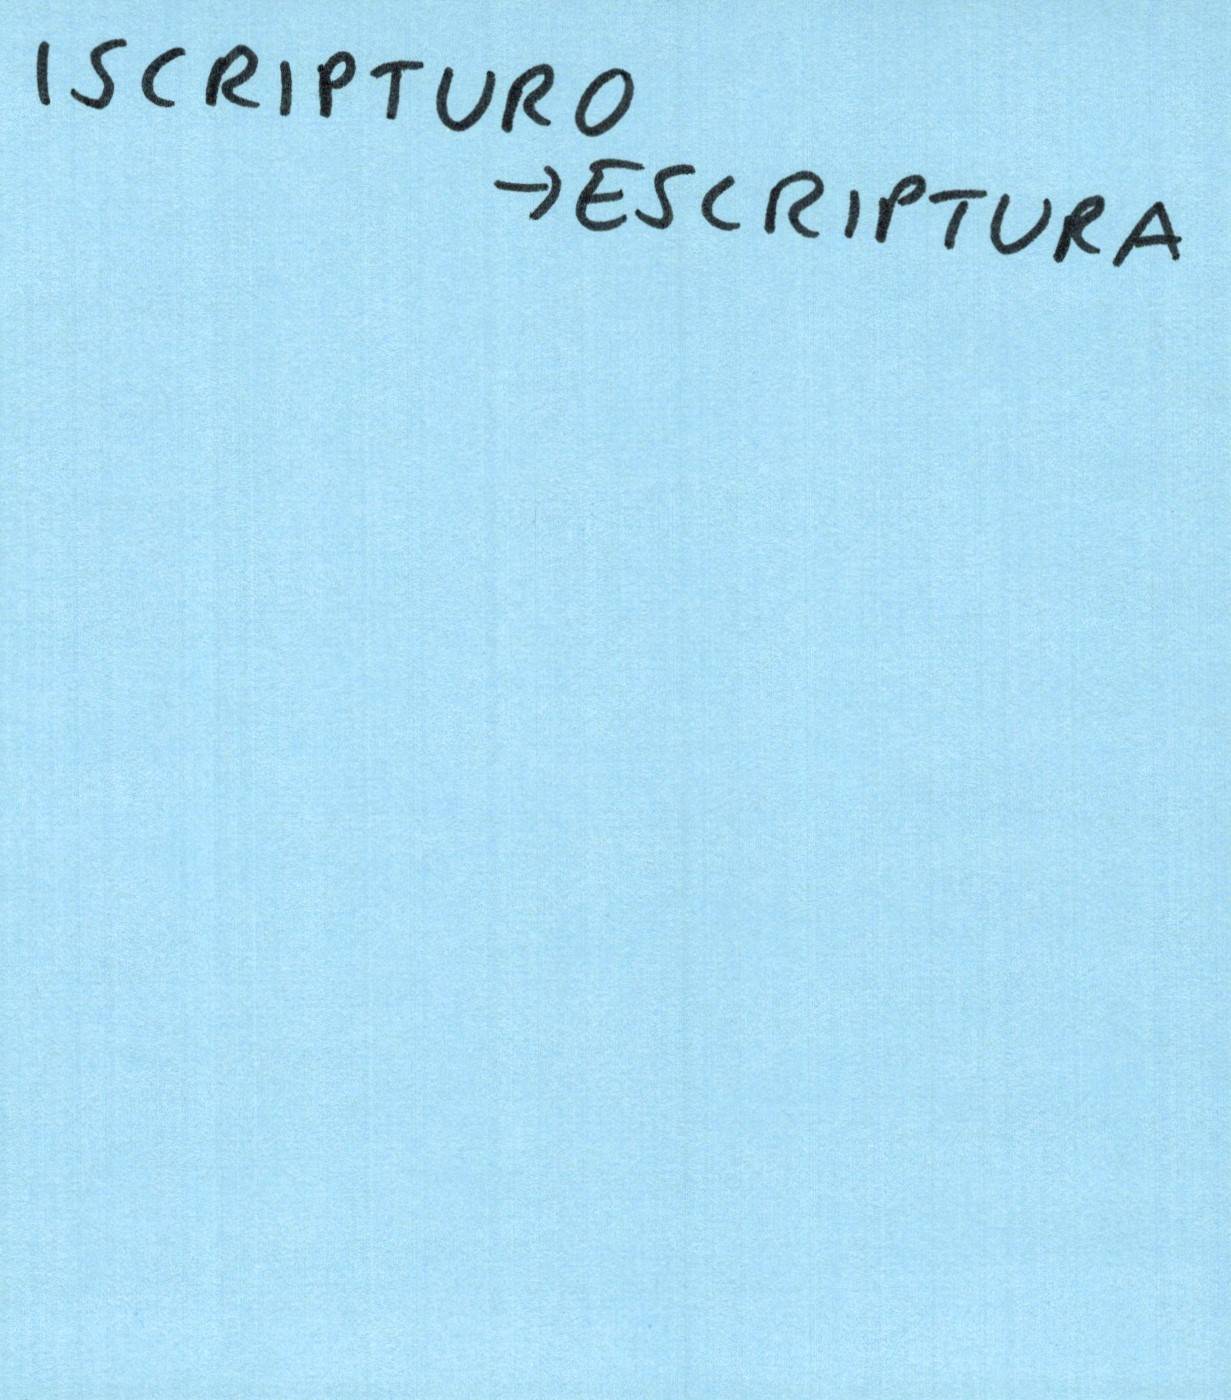 ISCRIPTURO
→ESCRIPTURA